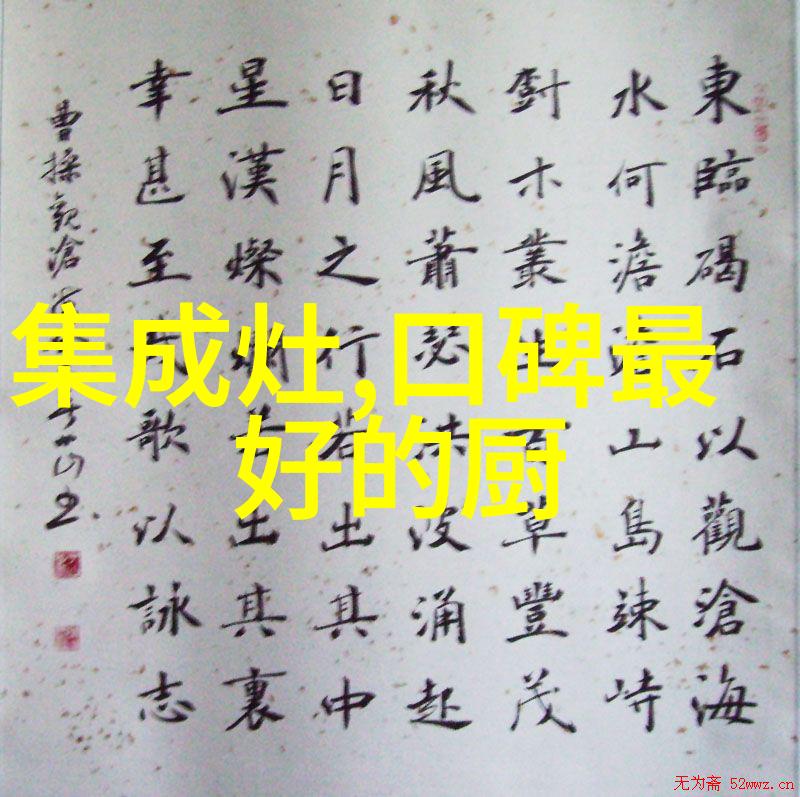 集成灶,口碑最
好的厨
東臨碣石以觀滄海
水何澹澹山島竦峙
尌木叢生百草豐茂
秋風蕭瑟洪波涌起
日月之行若出其中
星漢燦爛若出其裏
幸甚至哉歌以詠志
曹操觀滄
无为斋 52wwz.cn